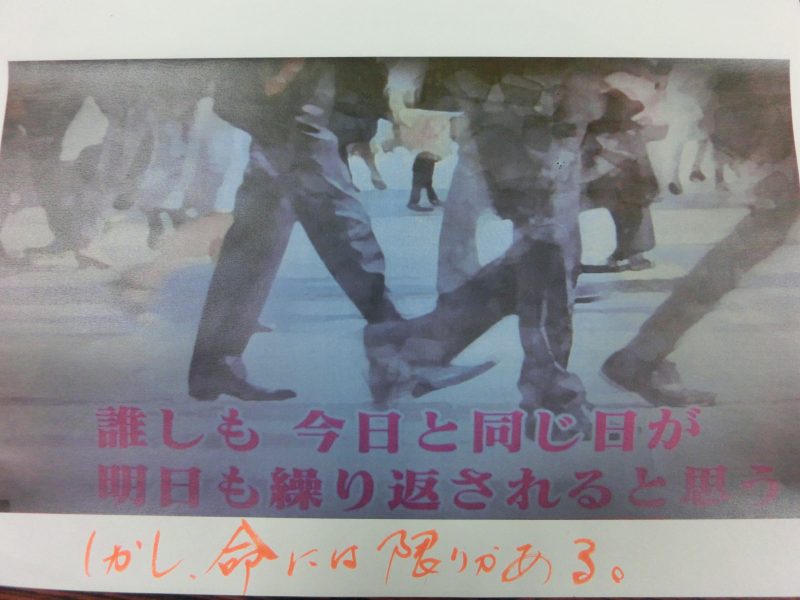 誰しも 今日と同じ日が
明日も繰り返されると思う
しかし、命には限りがある。